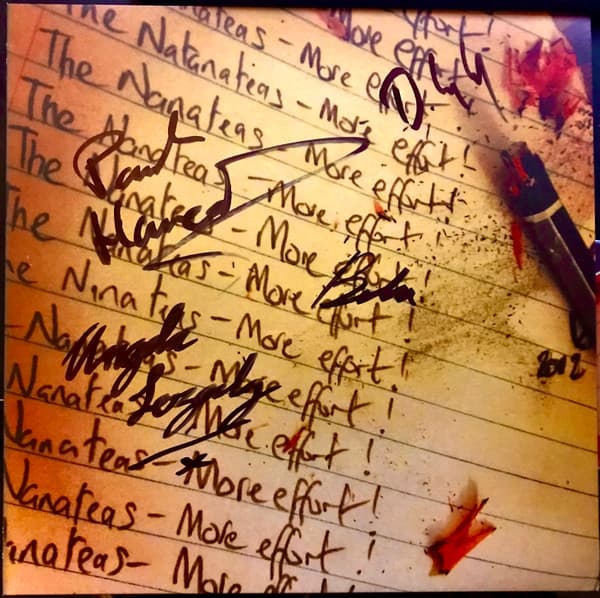 nateas - More effort!
The Natanateas - More effort!
The Nanateas - More effort!
The Nanateas - More effort!
The Nanateas - More effort!
The Nanateas - More effort!
he Ninateas - More effort!
2012
- Nanateas - More effort!
Nanateas More effort!
Nanateas - More effort!
Nanateas - More effort!
anateas - More effort!